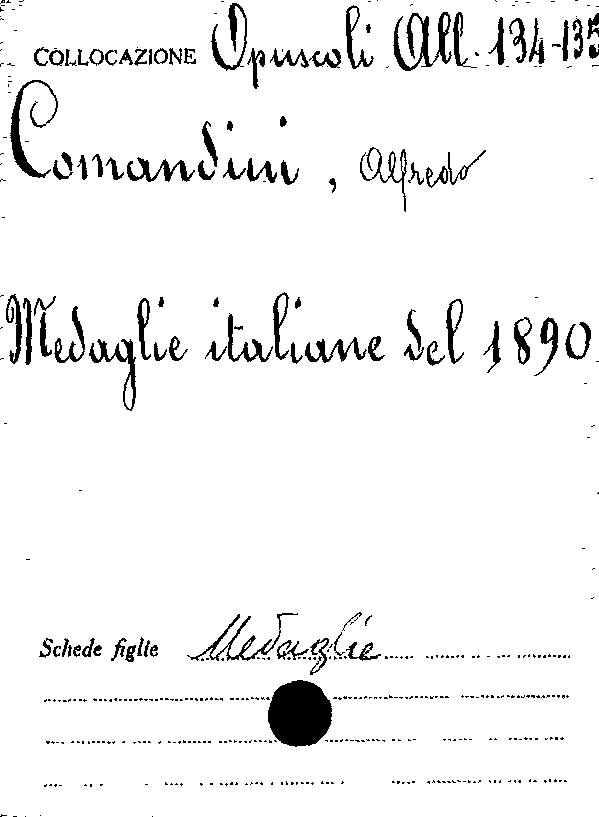 COLLOCAZIONE Opuscoli All. 134-135
Comandini, Alfredo
Medaglie italiane del 1890
Schede figlie Medaglie